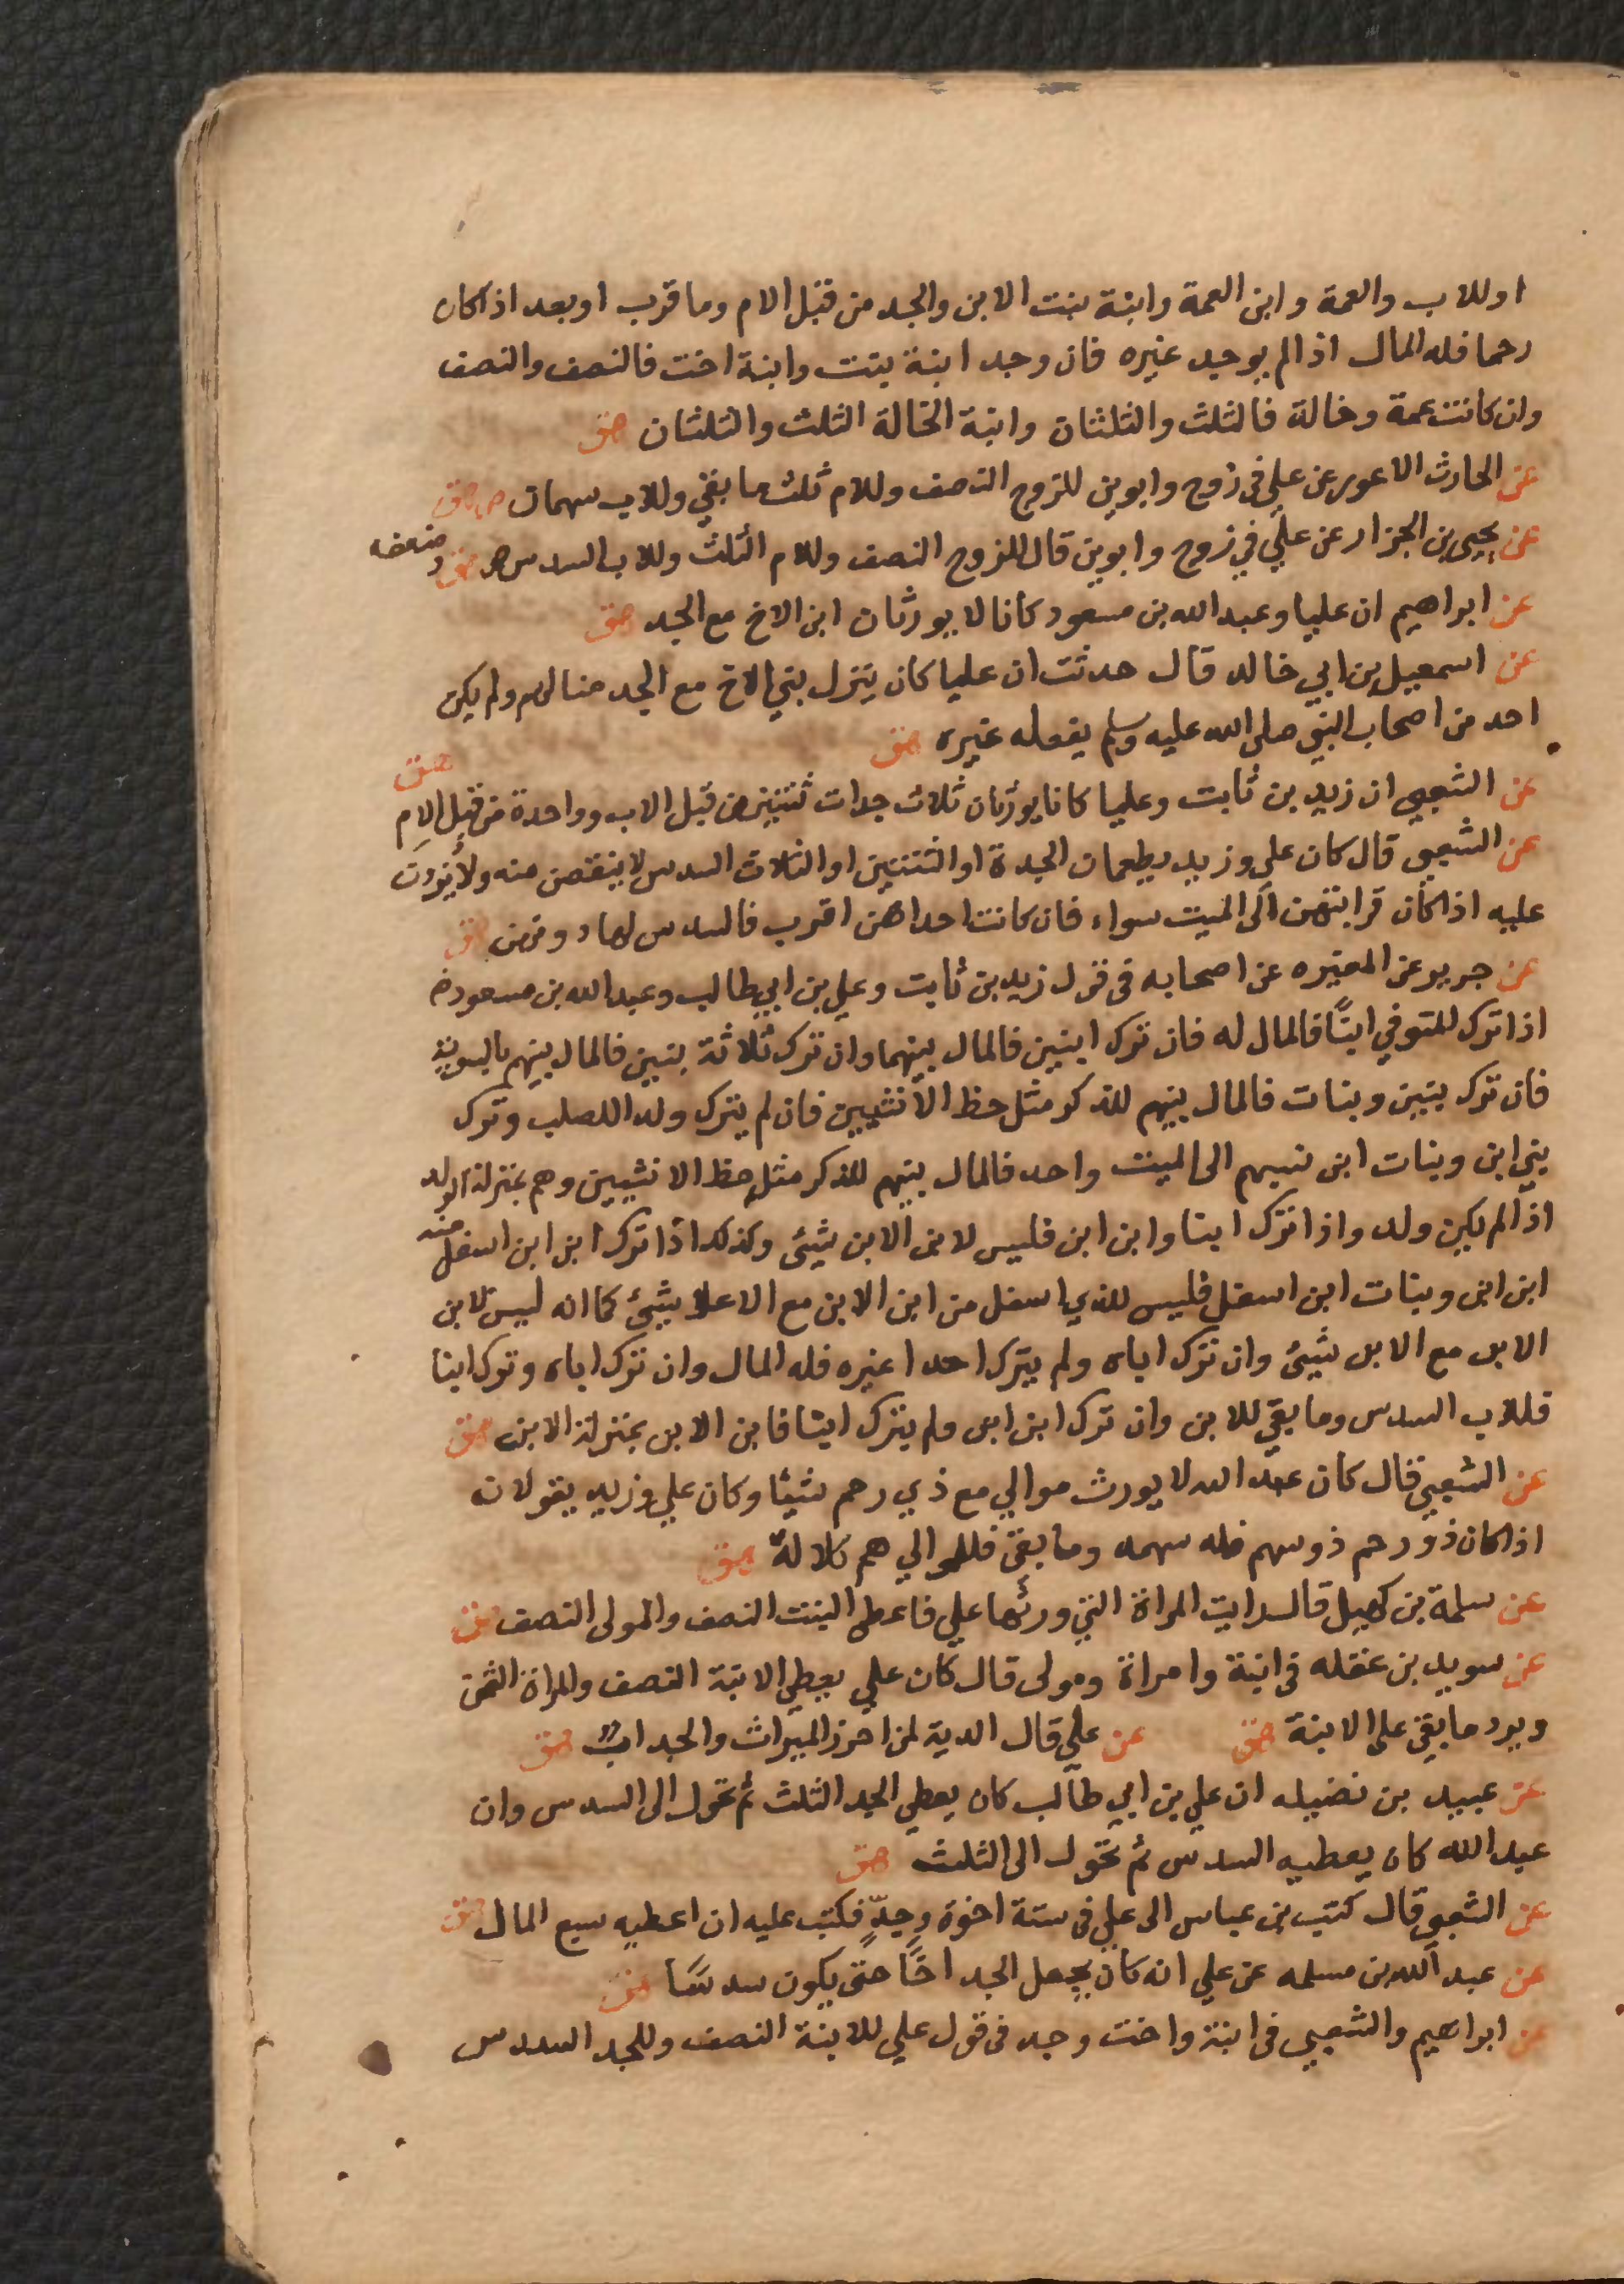 او للاب والعمة وابن العمة وابنة بنت الابن والجد من قبل الام وما قرب او بعد اذا كان
رحما فله المال اذا لم يوجد غيره فان وجد ابنة بنت وابنة اخت فالنصف والنصف
وان كانت عمة وخالة فالثلث والثلثان وابنة الخالة الثلث والثلثان هق
عن الحارث الاعور عن علي في زوج وابوين للزوج النصف وللام ثلث ما بقي وللاب سهمان ص هق
عن يحيى بن الجزار عن علي في زوج وابوين قال للزوج النصف وللام الثلث وللاب السدس ص هق وضعفه
عن ابراهيم ان عليا وعبد الله بن مسعود كانا لا يورثان ابن الاخ مع الجد هق
عن اسمعيل بن ابي خالد قال حدثت ان عليا كان ينزل بني الاخ مع الجد منازلهم ولم يكن
احد من اصحاب النبي صلى الله عليه وسلم يفعله غيره هق
عن الشعبي ان زيد بن ثابت وعليا كانا يورثان ثلاث جدات ثنتين من قبل الاب وواحدة من قبل الام هق
عن الشعبي قال كان علي وزيد يطعمان الجدة او الثنتين او الثلاث السدس لا ينقصن منه ولا يزدن
عليه اذا كان قرابتهن الى الميت سواء فان كانت احداهن اقرب فالسدس لها دونهن هق
عن جرير عن المغيره عن اصحابه في قول زيد بن ثابت وعلي بن ابي طالب وعبد الله بن مسعود
اذا ترك المتوفي ابنًا فالمال له فان ترك ابنين فالمال بينهما وان ترك ثلاثة بنين فالمال بينهم بالسوية
فان ترك بنين وبنات فالمال بينهم للذكر مثل حظ الانثيين فان لم يترك ولدا للصلب وترك
بني ابن وبنات ابن نسبهم الى الميت واحد فالمال بينهم للذكر مثل حظ الانثيين وهم بمنزلة الولد
اذا لم يكن ولد واذا ترك ابنا وابن ابن فليس لابن الابن شيئ وكذلك اذا ترك ابن ابن اسفل منه
ابن ابن وبنات ابن اسفل فليس للذي اسفل من ابن الابن مع الاعلا شيئ كما انه ليس لابن
الابن مع الابن شيئ وان ترك اباه ولم يترك احدا غيره فله المال وان ترك اباه وترك ابنا
فللاب السدس وما بقي للابن وان ترك ابن ابن ولم يترك ابنا فابن الابن بمنزلة الابن هق
عن الشعبي قال كان عبد الله لا يورث موالي مع ذي رحم شيئا وكان علي وزيد يقولان
اذا كان ذو رحم ذو سهم فله سهمه وما بقي فللموالي هم كلالة هق
عن سلمة بن كهيل قال رايت المراة التي ورثها علي فاعطى البنت النصف والمولى النصف هق
عن سويد بن غفله في ابنة وامراة ومولى قال كان علي يعطي الابنة النصف والمراة الثمن
ويرد ما بقي على الابنة هق عن علي قال الدية لمن احرز الميراث والجد اب هق
عن عبيد بن نضيله ان علي بن ابي طالب كان يعطي الجد الثلث ثم تحول الى السدس وان
عبد الله كان يعطيه السدس ثم تحول الى الثلث هق
عن الشعبي قال كتب بن عباس الى علي في ستة اخوة وجدٍّ فكتب عليه ان اعطيه سبع المال هق
عن عبد الله بن مسلمه عن علي انه كان يجعل الجد اخًا حتى يكون سدسًا هق
عن ابراهيم والشعبي في ابنة واخت وجد في قول علي للابنة النصف وللجد السدس